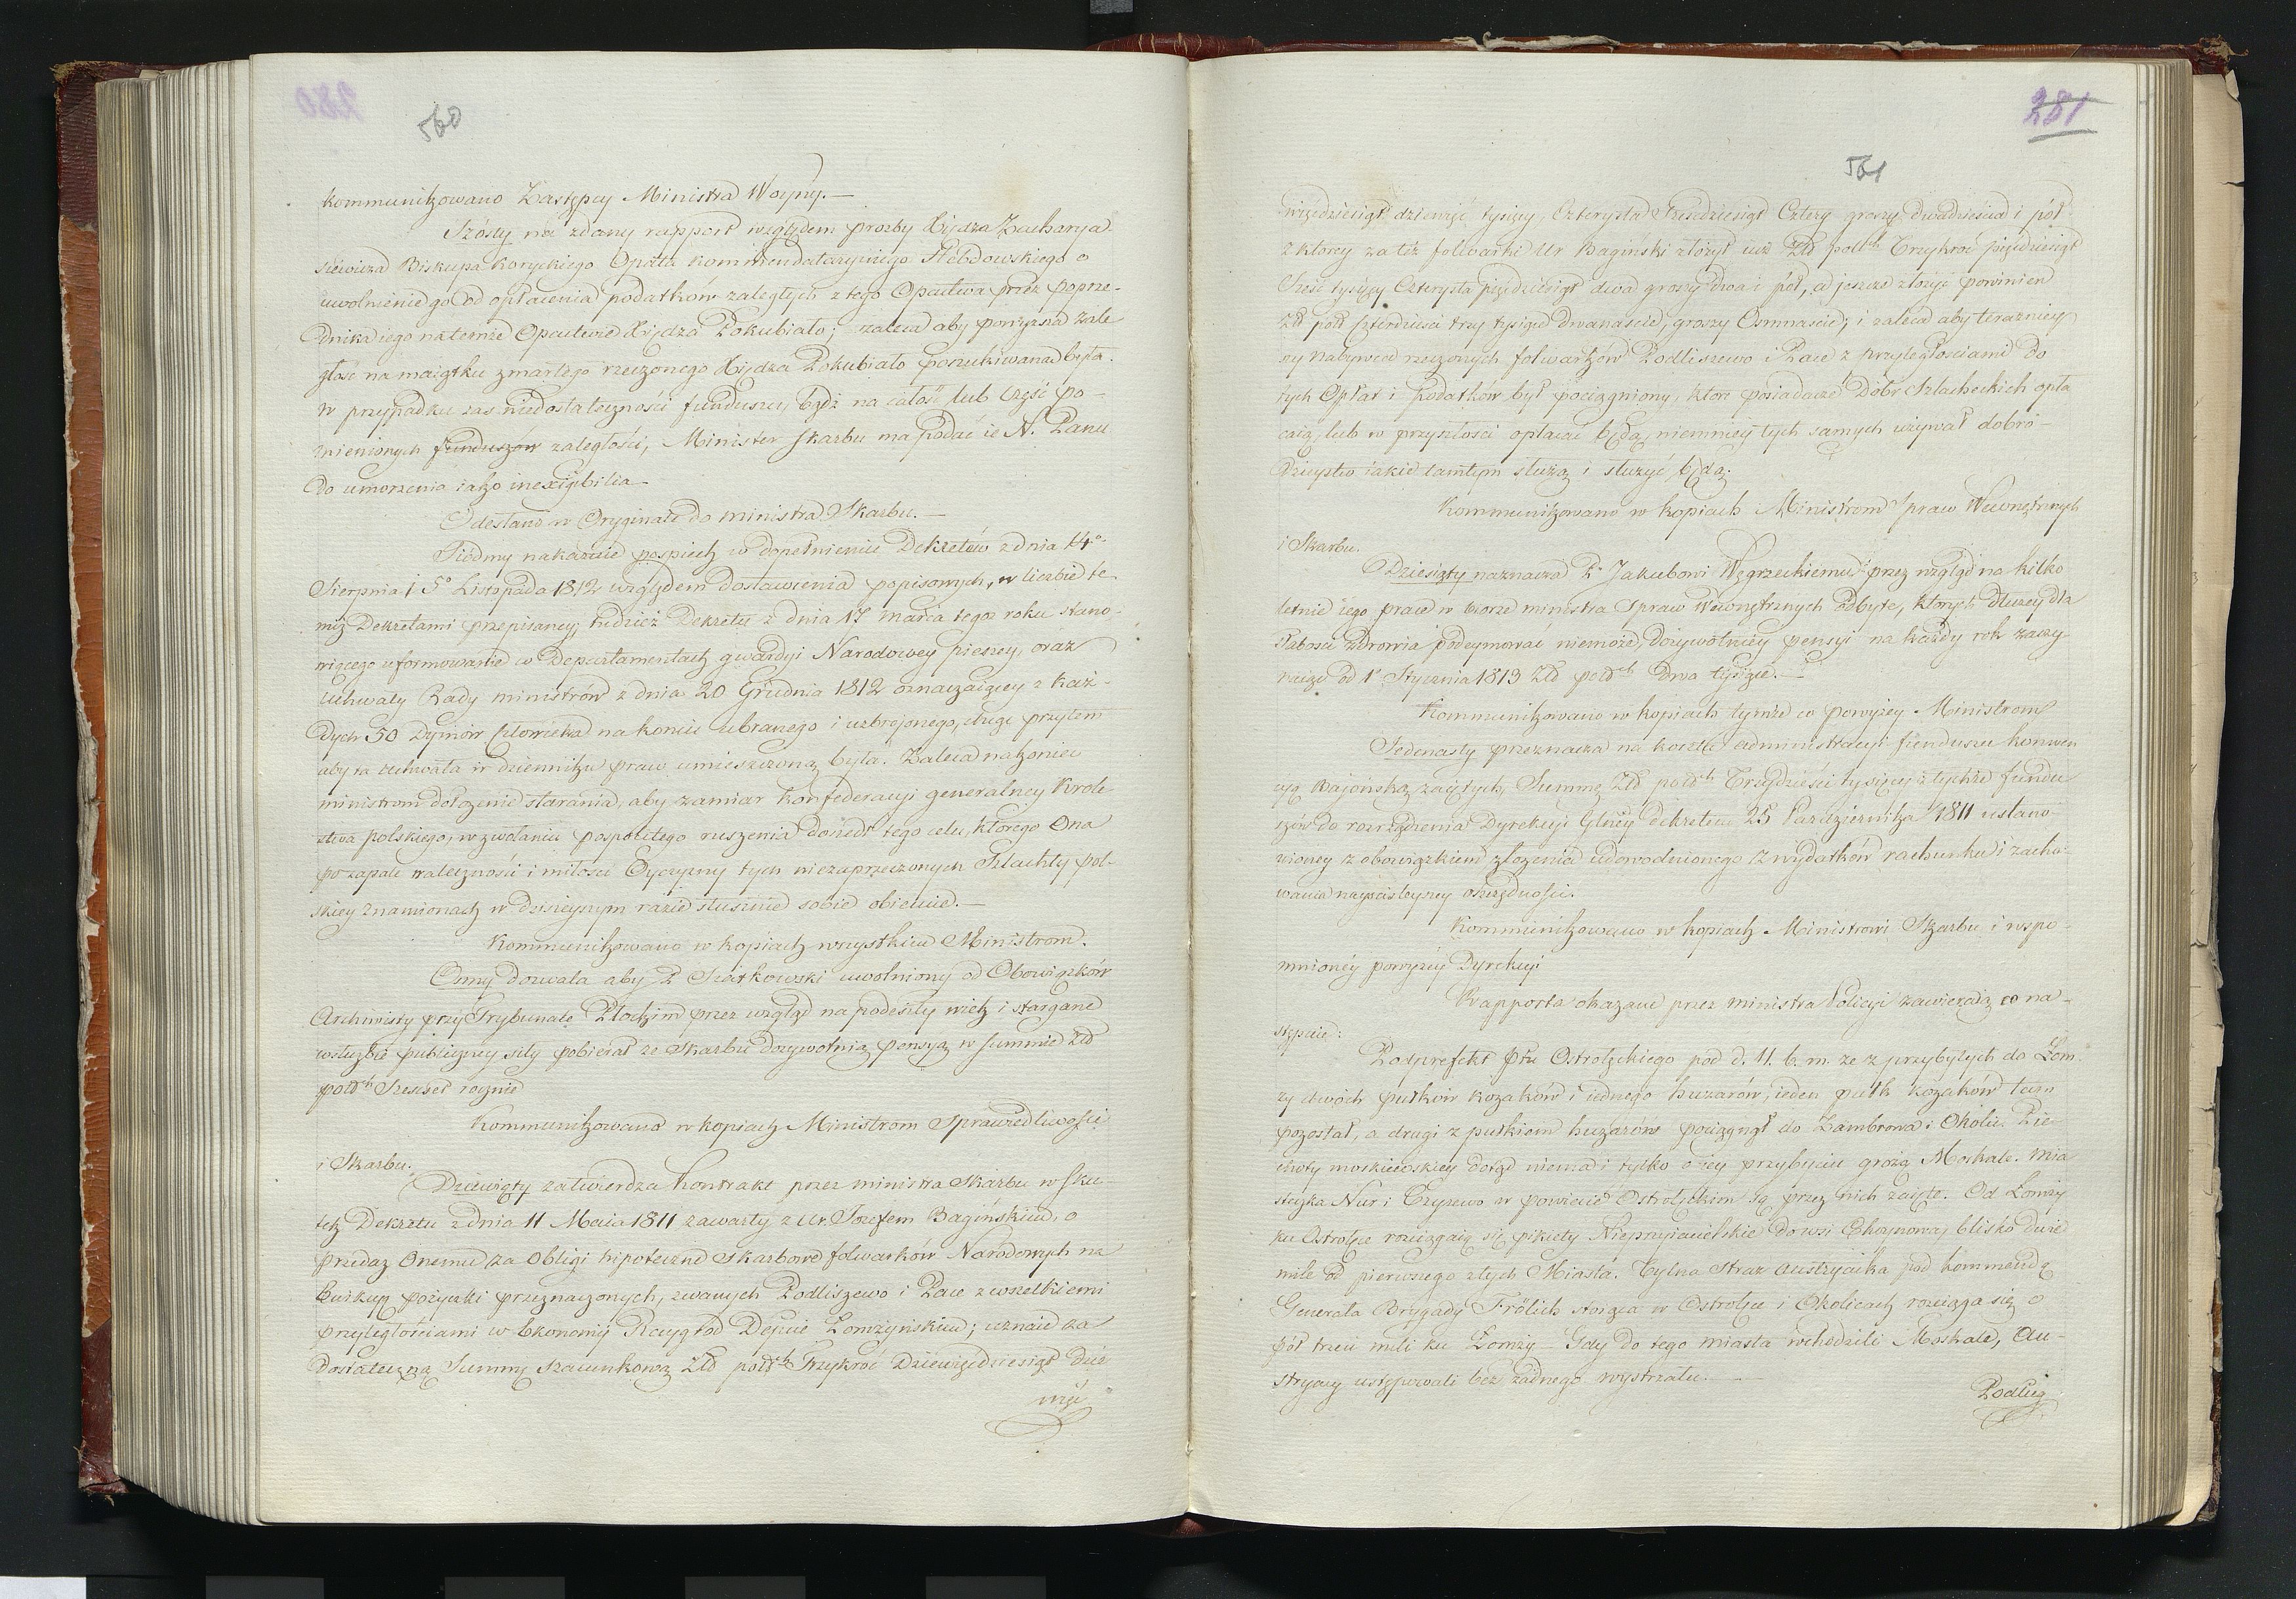 560
kommunikowano Zastępcy Ministra Woyny.—
Szósty na zdany rapport względem prozby Xiędza Zacharya-
siewicza Biskupa Koryckiego Opata kommendataryinego Hebdowskiego o
uwolnienie go od opłacenia podatków zaległych z tego Opactwa przez poprze-
dnika iego na temże Opactwie Xiędza Pokubiało; zaleca aby powyższa zale
głość na maiątku zmarłego rzeczonego Xiędza Pokubiało poszukiwana była.
w przypadku zaś niedostateczności funduszu, bądź na całość lub część po-
mienionych funduszów zaległości, Minister Skarbu ma podać ie N. Panu
do umorzenia iako inexigibilia—
Odesłano w Oryginale do ministra Skarbu.—
Siódmy nakazuie pospiech w dopełnieniu Dekretów z dnia 14o
Sierpnia i 5o Listopada 1812 względem dostawienia popisowych, w liczbie te-
miż Dekretami przepisaney; tudzież Dekretu z dnia 17 marca tegoż roku stano-
wiącego uformowanie w Departamentach gwardyi Narodowey pieszey, oraz
Uchwały Rady ministrów z dnia 20 Grudnia 1812 oznaczaiącey z każ-
dych 50 Dymów człowieka na koniu ubranego i uzbrojonego, chcąc przytem
aby ta uchwała w dzienniku praw umieszczoną była. Zaleca nakoniec
ministrom dołożenie starania, aby zamiar konfederacyi generalney Krole
stwa polskiego, w zwołaniu pospolitego ruszenia doszedł tego celu, którego Ona
po zapale waleczności i miłości Oyczyzny tych niezaprzeczonych Szlachty pol-
skiey znamionach w dzisieyszym razie słusznie sobie obiecuie.—
Kommunikowano w kopiach wszystkim Ministrom.
Osmy dozwala aby P. Szatkowski uwolniony od Obowiązków
Archiwisty przy Trybunale Płockim przez wzgląd na podeszły wiek i stargane
w służbie publiczney siły pobierał ze Skarbu dożywotnią pensyą w summie Złł
polsch Sześćset rocznie
Kommunikowano w kopiach Ministrom Sprawiedliwości
i Skarbu.
Dziewiąty zatwierdza kontrakt przez ministra Skarbu w sku-
tek Dekretu z dnia 11 Maia 1811 zawarty z Ur. Jozefem Bagińskim, o
przedaż Onemu za Obligi hipoteczne Skarbowe folwarków Narodowych na
wykup pożyczki przeznaczonych, zwanych Podliszewo i Pace z wszelkiemi
przyległościami w Ekonomii Raygrod Depcie Łomżyńskim; uznaie za
dostateczną Summę Szacunkową Złł polsch Trzykroć Dziewięćdziesiąt Dzie
więć
281
561
więdziesiąt dziewięć tysięcy, Czterysta Sześćdziesiąt Cztery groszy dwadzieścia i pół
z ktorey za też folwarki Ur Bagiński złożył iuż Złł polsch Trzykroć pięćdziesiąt
Sześć tysięcy Czterysta pięćdziesiąt dwa groszy dwa i pół, a jeszcze złożyć powinien
Złł pols czterdzieści trzy tysiące Dwanaście, groszy Osmnaście; i zaleca aby terazniey
szy nabywca rzeczonych folwarków Podliszewo i Pace z przyległościami do
tych Opłat i podatków był pociągniony, które posiadacze Dóbr Szlacheckich opła
caią, lub w przyszłości opłacać będą, niemniey tych samych używał dobro-
dzieystw iakie tamtym służą i służyć będą.
Kommunikowano w kopiach Ministrom Spraw Wewnętrznych
i Skarbu.
Dziesiąty naznacza P. Jakubowi Węgrzeckiemu przez wzgląd na kilko
letnie iego prace w biorze ministra Spraw Wewnętrznych odbyte, których dłużey dla
słabości zdrowia podeymować niemoże, dożywotniey pensyi na każdy rok zaczy-
naiąc od 1o Stycznia 1813 Złł polsch Dwa tysiące.—
Kommunikowano w kopiach tymże co powyżey Ministrom
Jedenasty przeznacza na koszta administracyi funduszu konwen
cyą Bajońską zaiętych, Summę Złł polsch Trzydzieści tysięcy z tychże fundu
szów do rozrządzenia Dyrekcyi Główney dekretem 25 Października 1811 ustano-
wioney z obowiązkiem złożenia udowodnionego z wydatków rachunku i zacho-
wania nayściśleyszey oszczędności.
Kommunikowano w kopiach Ministrowi Skarbu i wspo-
mnionéy powyżey Dyrekcyi
Rapporta okazane przez ministra Policyi zawieraią co na-
stępuie:
Podprefekt Ptu Ostrołęckiego pod d. 11. b. m. że z przybyłych do Łom-
ży dwóch pułków kozaków i iednego huzarów, ieden pułk kozaków tam
pozostał, a drugi z pułkiem huzarów pociągnął do Zambrowa i Okolic. Pie-
choty moskiewskiey dotąd niema i tylko o iey przybyciu grożą Moskale. Mia
steczka Nur i Czyżewo w powiecie Ostrołęckim są przez nich zaięte. Od Łomży
ku Ostrołęce rozciągaią się pikiety Nieprzyiacielskie do wsi Choynowa, blisko dwie
mile od pierwszego z tych Miasta. Tylna Straż austryacka pod kommendą
Generała Brygady Frölich stoiąca w Ostrołęce i Okolicach rozciąga się o
pół trzeci mili ku Łomży — Gdy do tego miasta wchodzili Moskale, Au-
stryacy ustępowali bez żadnego wystrzału.—
Podług